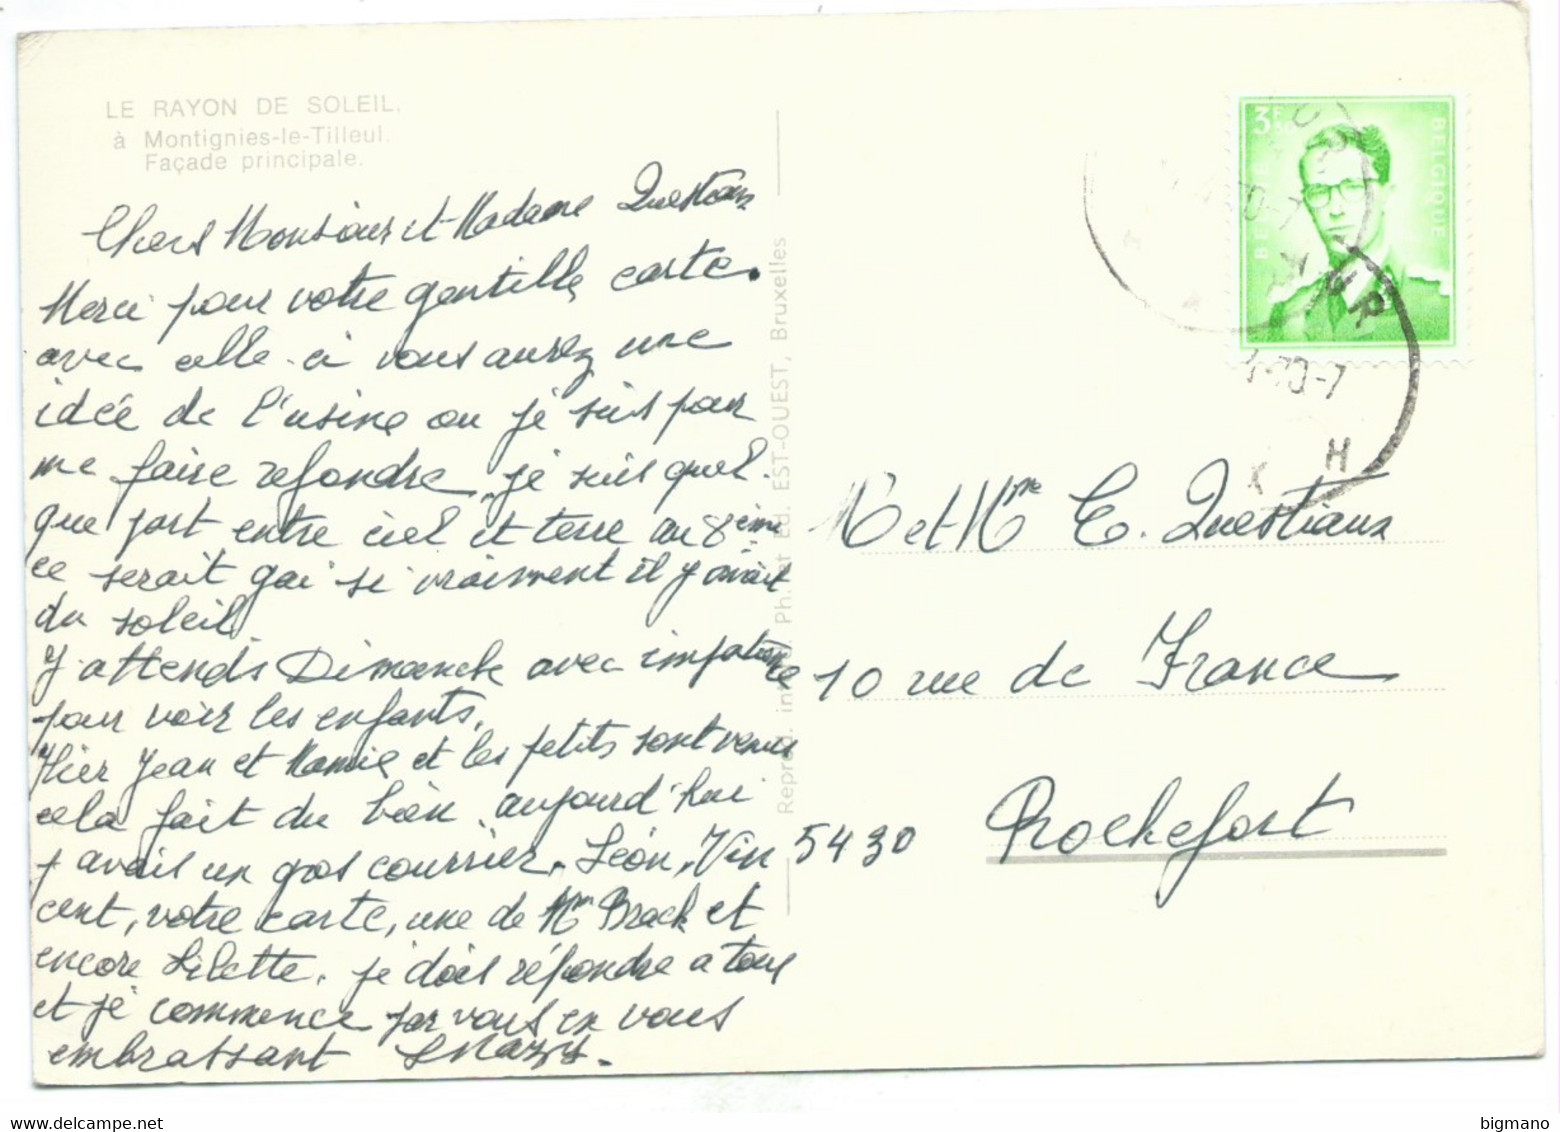 LE RAYON DE SOLEIL.
à Montignies-le-Tilleul.
Façade principale.
Chers Monsieur et Madame Questiaux
Merci pour votre gentille carte.
avec celle-ci vous aurez une
idée de l'usine ou je suis pour
me faire refondre, je suis quel-
que part entre ciel et terre au 8ème
ce serait gai si vraiment il y avait
du soleil
J'attends Dimanche avec impatience
pour voir les enfants.
Hier Jean et Mamie et les petits sont venus
cela fait du bien, aujourd'hui
j'avais un gros courrier. Léon, Vin
cent, votre carte, une de Mme Brack et
encore Lilette. je dois répondre a tous
et je commence par vous en vous
embrassant
Reprod. Ph. et Ed. EST-OUEST, Bruxelles
3F50
BELGIË
BELGIQUE
M et Mme C. Questiaux
10 rue de France
5430 Rochefort
bigmano